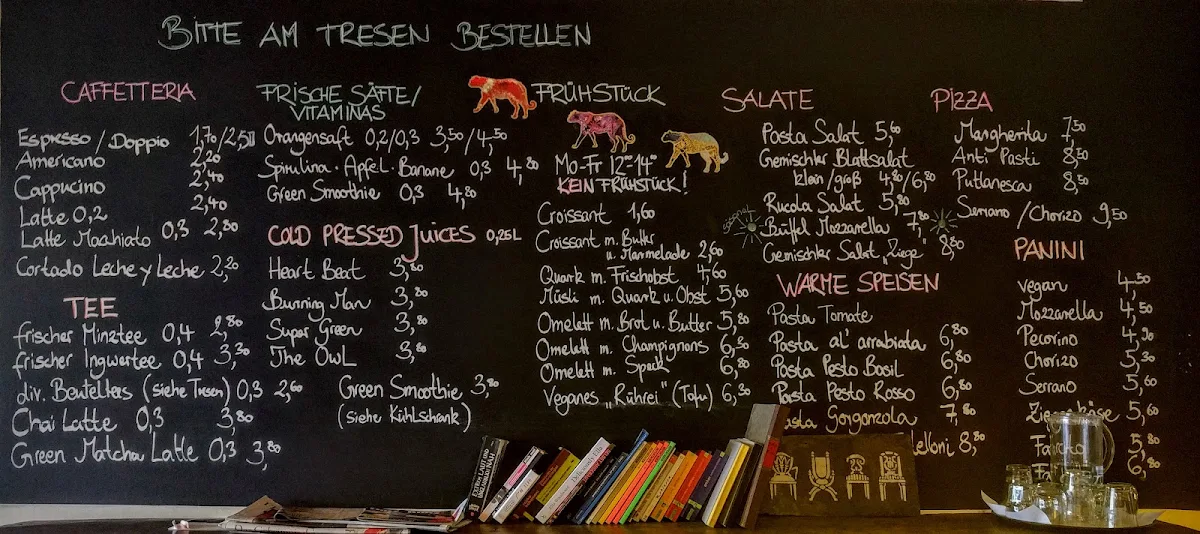 BITTE AM TRESEN BESTELLEN
CAFFETTERIA
Espresso / Doppio 1,70/2,50
Americano 2,20
Cappucino 2,40
Latte 0,2 2,40
Latte Macchiato 0,3 2,80
Cortado Leche y Leche 2,20
TEE
frischer Minztee 0,4 2,80
frischer Ingwertee 0,4 3,30
div. Beuteltees (siehe Tresen) 0,3 2,60
Chai Latte 0,3 3,80
Green Matcha Latte 0,3 3,80
FRISCHE SÄFTE/
VITAMINAS
Orangensaft 0,2/0,3 3,50/4,50
Spirulina · Apfel · Banane 0,3 4,80
Green Smoothie 0,3 4,80
COLD PRESSED JUICES 0,25L
Heart Beat 3,80
Burning Man 3,80
Super Green 3,80
The OwL 3,80
Green Smoothie 3,80
(siehe KühLschrank)
FRÜHSTÜCK
Mo-Fr 12°°-14°°
KEIN FRÜHSTÜCK!
Croissant 1,60
Croissant m. Butter
u. Marmelade 2,60
Quark m. Frischobst 4,60
Müsli m. Quark u. Obst 5,60
Omelett m. Brot u. Butter 5,80
Omelett m. Champignons 6,30
Omelett m. Speck 6,80
Veganes „Rührei" (Tofu) 6,30
SALATE
Pasta Salat 5,60
Gemischter Blattsalat
klein/groß 4,80/6,80
Rucola Salat 5,80
Büffel Mozzarella 7,80
Gemischter Salat „Ziege" 8,80
WARME SPEISEN
Pasta Tomate
Pasta al' arrabiata 6,80
Pasta Pesto Basil 6,80
Pasta Pesto Rosso 6,80
asta Gorgonzola 7,80
elloni 8,80
PIZZA
Margherita 7,50
Anti Pasti 8,50
Puttanesca 8,50
Serrano / Chorizo 9,50
PANINI
vegan 4,50
Mozzarella 4,50
Pecorino 4,90
Chorizo 5,30
Serrano 5,60
5,60
5,80
6,80